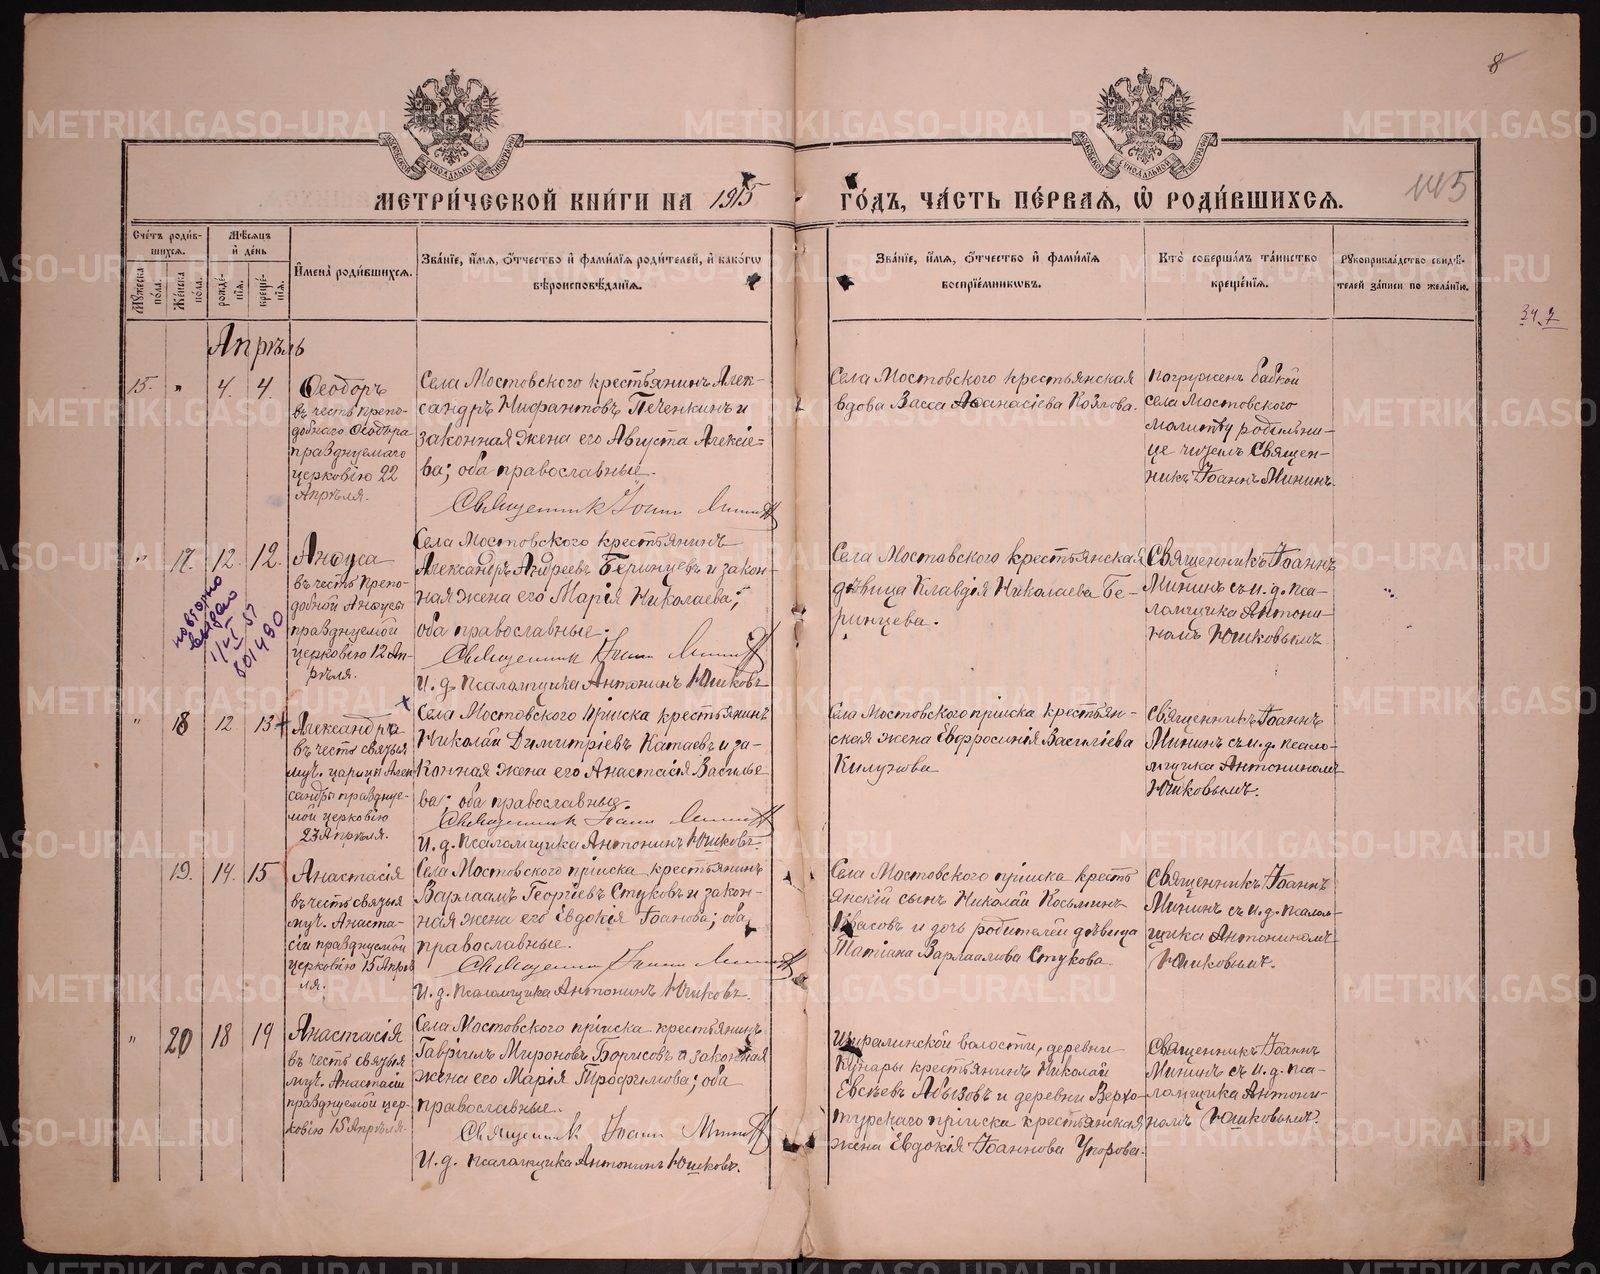 8
МЕТРИ́ЧЕСКОЙ КНИ́ГИ НА 1915 ГО́ДЪ, ЧА́СТЬ ПЕ́РВАѦ, Ѡ РОДИ́ВШИХСѦ.
Сче́тъ роди́в-
шихсѧ.
Мѣ́сѧцъ
и҆ де́нь
Мꙋ́жеска
по́ла.
Же́нска
по́ла.
рожде́-
нїѧ.
креще́-
нїѧ.
И҆мена̀ роди́вшихсѧ.
Зва́нїе, и҆́мѧ, ѻ҆́тчество и҆ фами́лїѧ роди́телей, и҆ како́гѡ
вѣроисповѣ́данїѧ.
Зва́нїе, и҆́мѧ, ѻ҆́тчество и҆ фами́лїѧ
воспрїе́мникѡвъ.
Кто̀ соверша́лъ та́инство
креще́нїѧ.
Рꙋкоприкла́дство свидѣ́-
телей за́писи по жела́нїю.
Апрѣль
15. " 4. 4.
Ѳеодоръ
въ честь препо-
добнаго Ѳеодора
празднуемаго
церковію 22
Апрѣля.
Села Мостовского крестьянинъ Алек-
сандръ Нифантовъ Печенкинъ и
законная жена его Августа Алексіе-
ва; оба православные.
Священник Іоанн Минин
Села Мостовского крестьянская
вдова Васса Аѳанасіева Козлова.
Погружен бабкой
села Мостовского
молитву родильни-
це читал Священ-
никъ Іоаннъ Мининъ.
" 17. 12. 12.
повторно
выдано
Анѳуса
въ честь препо-
добной Анѳусы
празднуемой
церковію 12 Ап-
рѣля.
Села Мостовского крестьянинъ
Александръ Андреевъ Беринцевъ и закон-
ная жена его Марія Николаева;
оба православные.
Священник Іоанн Минин
И. д. псаломщика Антонинъ Юшковъ
Села Мостовского крестьянская
дѣвица Клавдія Николаева Бе-
ринцева.
Священникъ Іоаннъ
Мининъ съ и. д. пса-
ломщика Антони-
номъ Юшковымъ
" 18 12 13
Александра
въ честь святыя
муч. царицы Алек-
сандры праздnуе-
мой церковію
23 Апрѣля.
Села Мостовского пріиска крестьянинъ
Николай Димитріевъ Катаевъ и за-
конная жена его Анастасія Василье
ва; оба православные.
Священник Іоанн Минин
И. д. псаломщика Антонинъ Юшковъ.
Села Мостовского пріиска крестьян-
ская жена Евфросинія Василіева
Священникъ Іоаннъ
Мининъ съ и. д. псало-
мщика Антониномъ
Юшковымъ.
19. 14. 15
Анастасія
въ честь святыя
муч. Анаста-
сіи празднуемой
церковію 15 Апрѣ
ля.
Села Мостовского пріиска крестьянинъ
Варлаамъ Георгіевъ Стуковъ и закон-
ная жена его Евдокія Іоанова; оба
православные.
Священник Іоанн Минин
И. д. псаломщика Антонинъ Юшковъ.
Села Мостовского пріиска кресть
янскій сынъ Николай Косьминъ
и дочь родителей дѣвица
Татіана Варлаамова Стукова.
Священникъ Іоаннъ
Мининъ съ и. д. псалом-
щика Антониномъ
Юшковымъ.
" 20 18 19
Анастасія
въ честь святыя
муч. Анастасіи
празднуемой цер-
ковію 15 Апрѣля.
Села Мостовского пріиска крестьянинъ
Гавріилъ Мироновъ Борисовъ и законная
жена его Марія Трофимова; оба
православные.
Священник Іоанн Минин
И. д. псаломщика Антонинъ Юшковъ.
волости, деревни
Кунары крестьянинъ Николай
Евсѣевъ Абызовъ и деревни Верхо-
турскаго пріиска крестьянская
жена Евдокія Іоаннова Упорова.
Священникъ Іоаннъ
Мининъ съ и. д. пса-
ломщика Антони-
номъ Юшковымъ.
METRIKI.GASO-URAL.RU